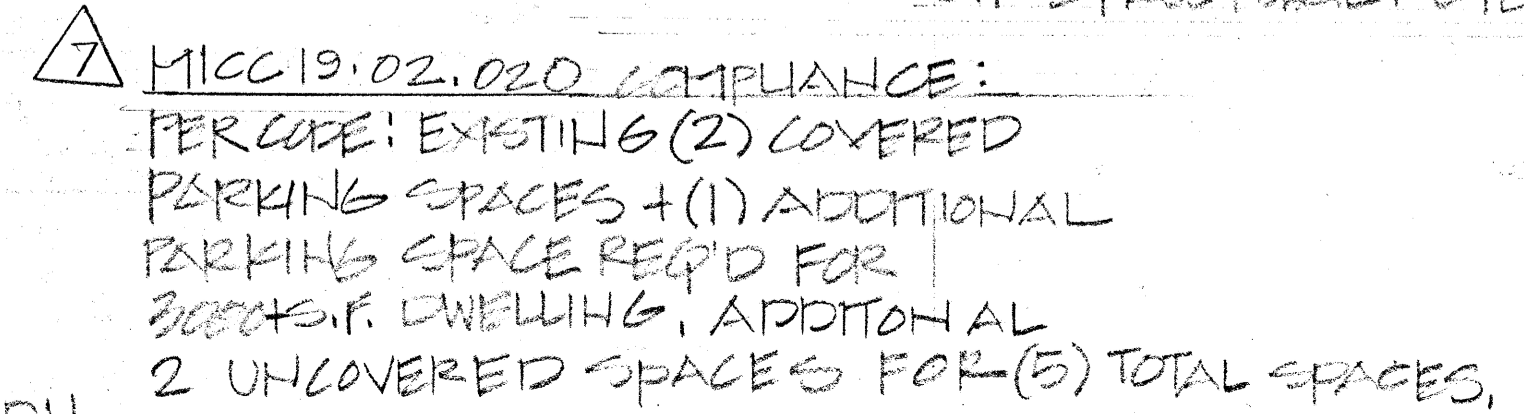 7 MICC 19.02.020 COMPLIANCE:
PER CODE: EXISTING (2) COVERED
PARKING SPACES + (1) ADDITIONAL
PARKING SPACE REQ'D FOR
3000+S.F. DWELLING. ADDITONAL
2 UNCOVERED SPACES FOR (5) TOTAL SPACES.